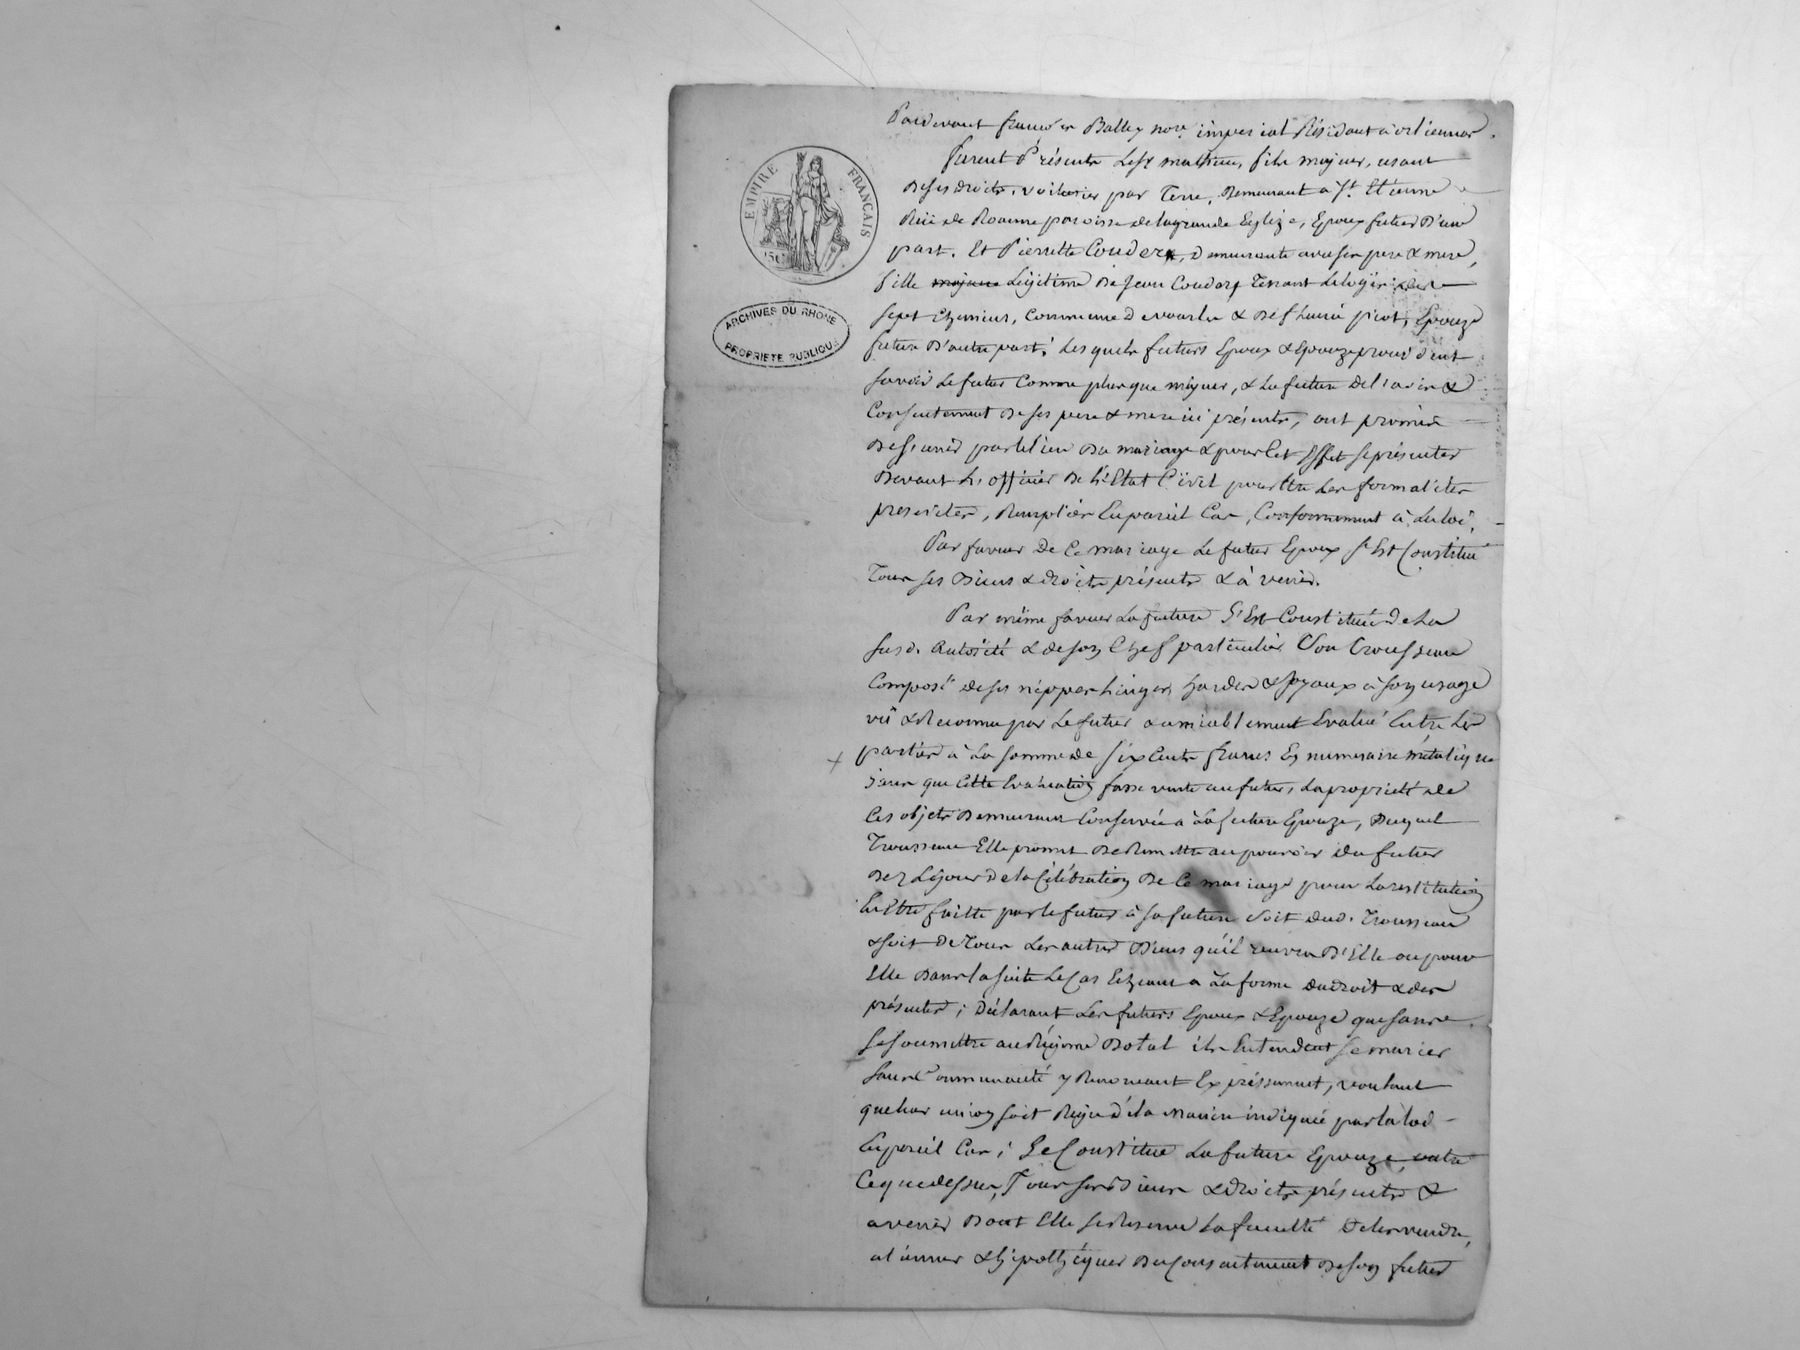 EMPIRE FRANÇAIS
ARCHIVES DU RHONE
PROPRIETE PUBLIQUE
Pardevant françois Balley nore impérial Résidant à orliennas.
furent Présents mathieu, fils majeur, usant
de ses droits, voiturier par Terre, Demeurant à St. Etienne
Rüe de Roanne paroisse de la grande Eglize, Epoux futur D'une
part. Et Pierrette Couderx, Demeurante avec ses pere & mere,
fille majeure Légitime de Jean Couderx Tenant Le logis des
sept Chemins, Commune de vourles & de picot, Epouze
future D'autre part; Lesquels futurs Epoux & Epouze procédent
savoir Le futur Comme plus que majeur, & La future de l'avis &
Consentement de ses pere & mere ici présents, ont promis
de s'unir par le lien du mariage & pour Cet Effet se présenter
devant L'officier de l'Etat Civil pour Etre Les formalités
prescrites, Remplies En pareil Cas, Conformement à La loi.
Par faveur de Ce mariage Le futur Epoux s'Est Constitué
Tous ses Biens & droits présents & à venir.
Par même faveur La future S'Est Constituée de La
susd. autorité & de son Chef particulier Son Trousseau
Composé de ses nippes Linges hardes & Joyaux à son usage
vû & Reconnu par Le futur & amiablement Evalué Entre Les
+ parties à La somme de six Cents francs En numeraire métalique
sans que Cette Evaluation fasse vente au futur, La propriété de
Ces objets demeurant Conservée à La future Epouze, Duquel
Trousseau Elle promet de Remettre au pouvoir du futur
dez Le jour de la Célébration de Ce mariage pour La restitution
En Etre faitte par le futur à sa future soit dud. Trousseau
& soit de Tous Les autres Biens qu'il recevra d'Elle ou pour
Elle dans la suite Le Cas Echeant à La forme du droit & des
présentes; Déclarant Les futurs Epoux & Epouze que sans
se soumettre au Régime Dotal ils Entendent se marier
sans Communauté y Renonçant Expréssement, voulant
que leur union soit Régie de la maniere indiquée par la loi
En pareil Cas; Se Constitue La future Epouze, outre
Ce que dessus, Tous ses Biens & droits présents &
avenir dont Elle se Reserve La faculté de les vendre,
aliener & hÿpothéquer du Consentement de son futur